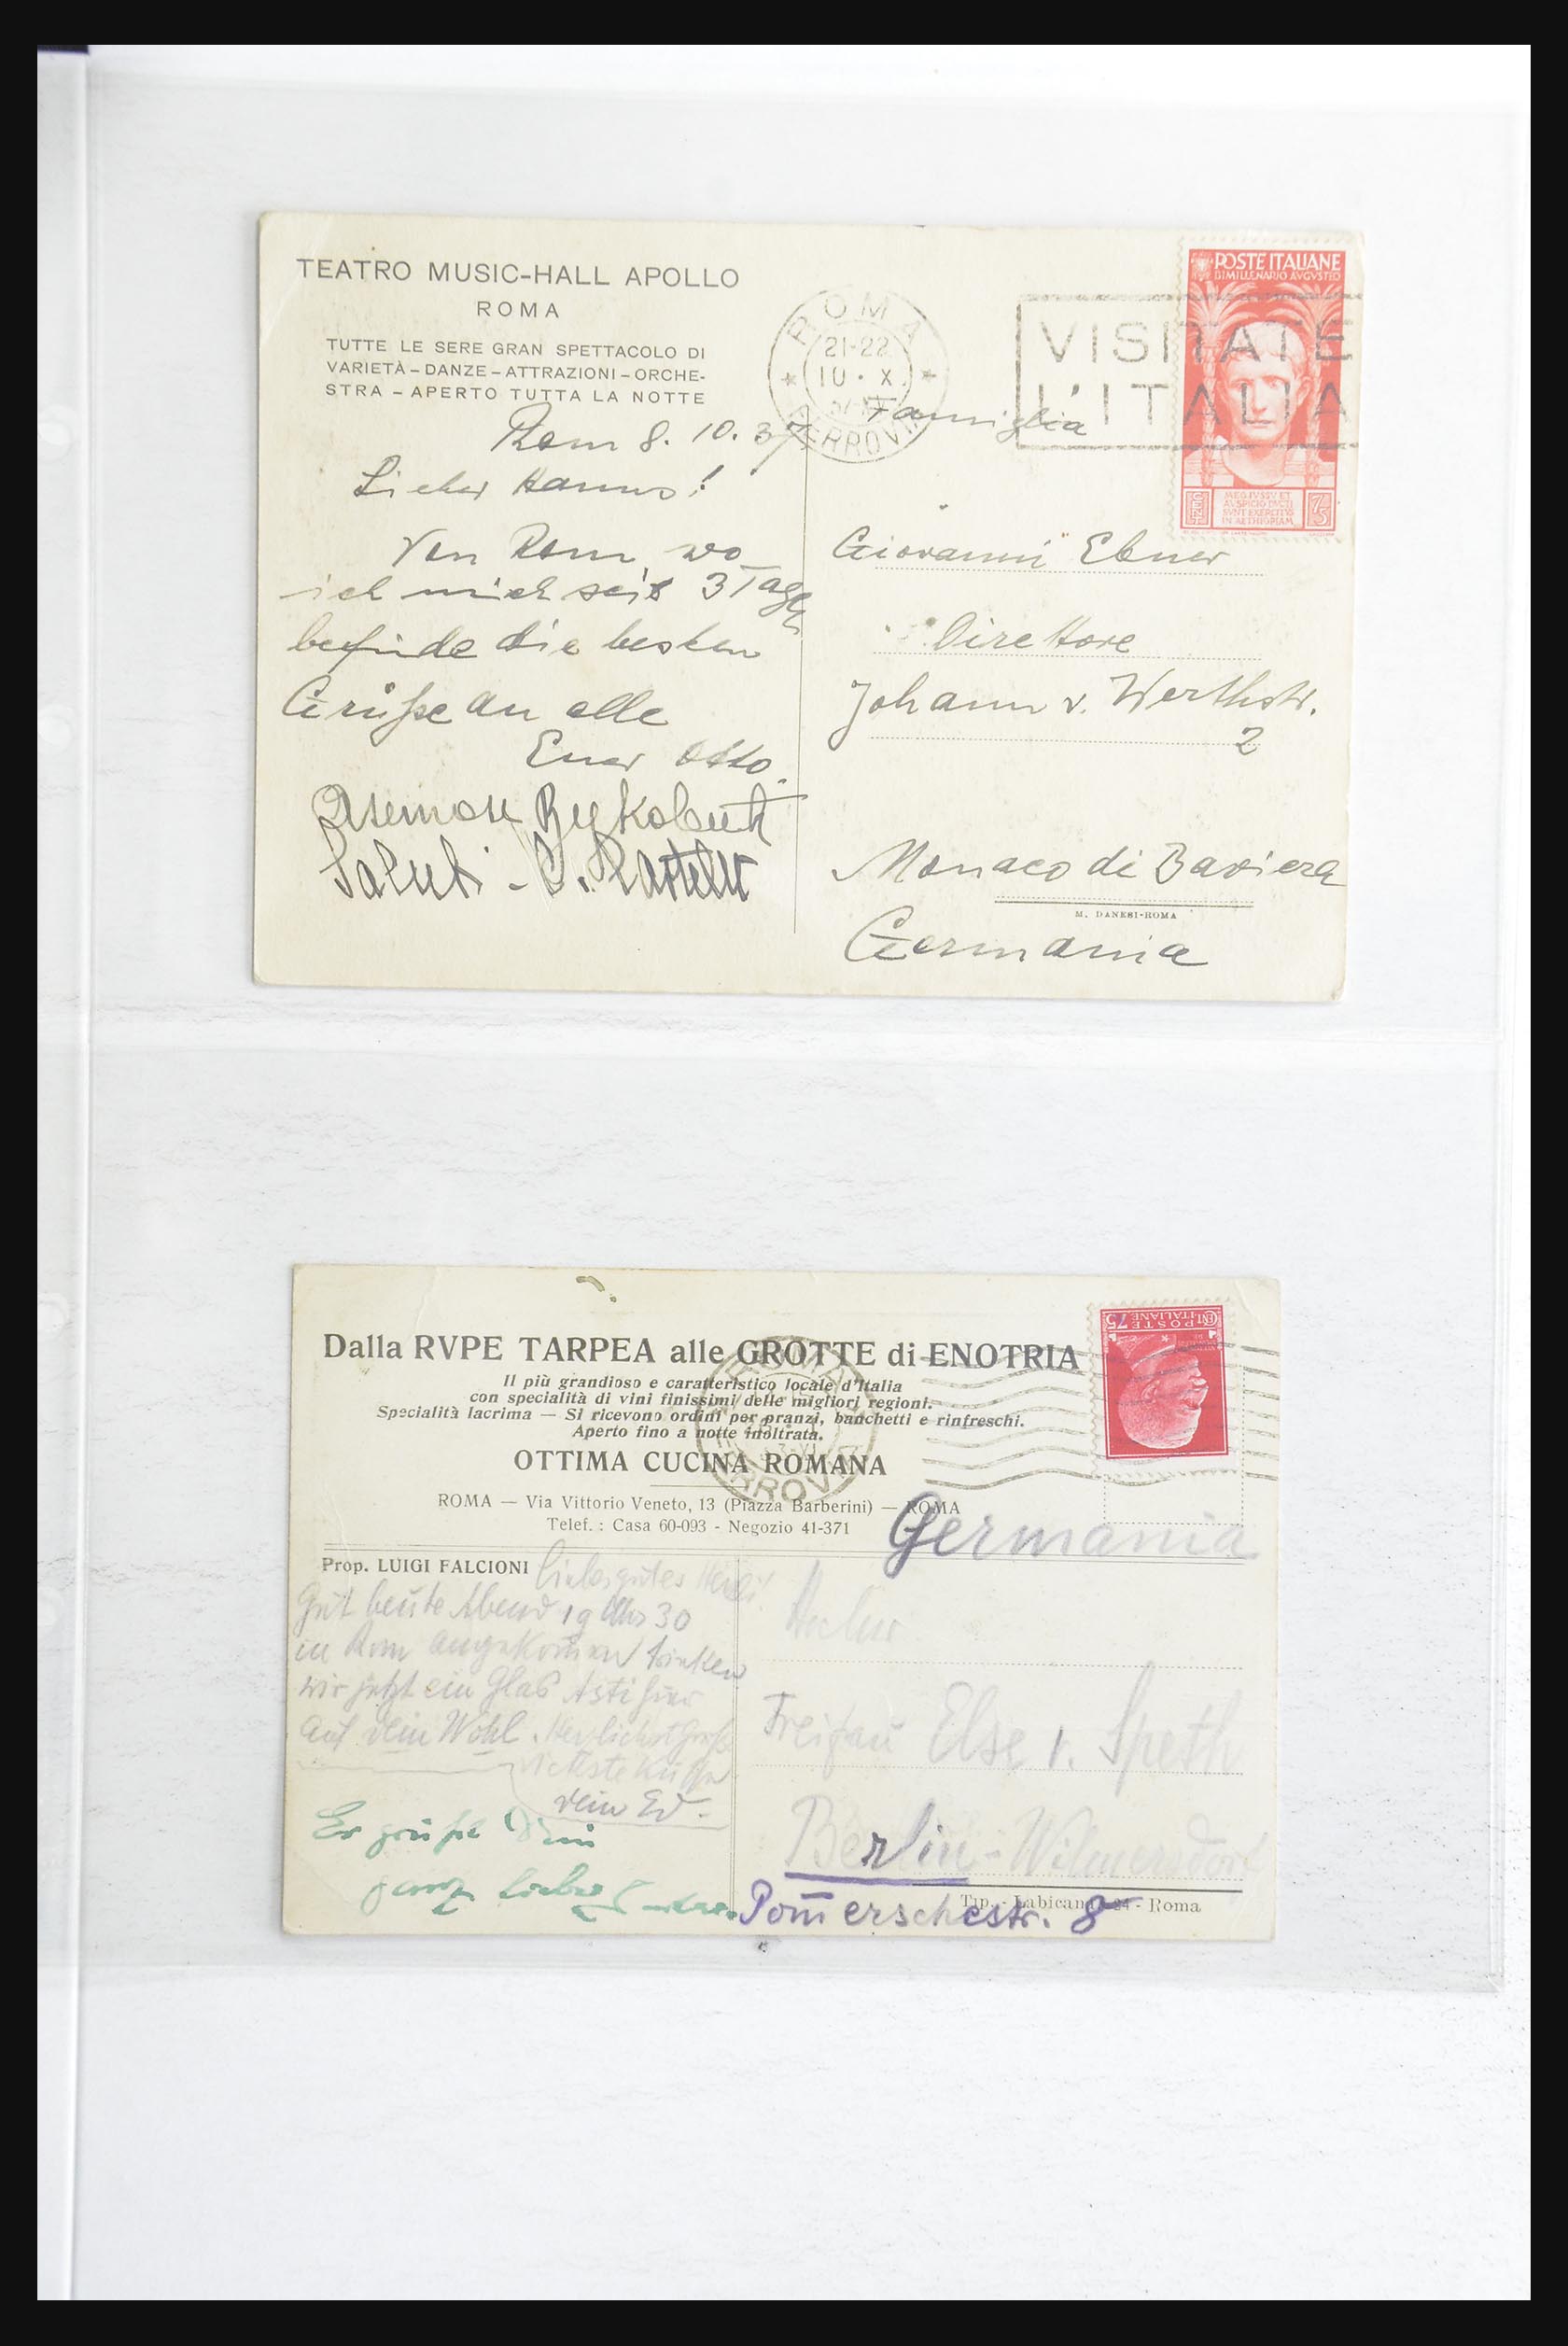 TEATRO MUSIC-HALL APOLLO
ROMA
TUTTE LE SERE GRAN SPETTACOLO DI
VARIETÀ – DANZE – ATTRAZIONI – ORCHE-
STRA – APERTO TUTTA LA NOTTE
Rom 8. 10. 37
Lieber Hanns!
Von Rom, wo
ich mich seit 3 Tagen
befinde die besten
Grüße an alle
Euer Otto.
Saluti -
ROMA
21-22
10 · X
FERROVIA
VISITATE
L'ITALIA
POSTE ITALIANE
BIMILLENARIO AVGVSTEO
CENT
MEO IVSSV ET
AVSPICIO DVCTI
SVNT EXERCITVS
IN AETHIOPIAM
75
Famiglia
Giovanni Ebner
Direttore
Johann v. Werthstr.
2
Monaco di Baviera
M. DANESI-ROMA
Germania
Dalla RVPE TARPEA alle GROTTE di ENOTRIA
Il più grandioso e caratteristico locale d'Italia
con specialità di vini finissimi delle migliori regioni.
Specialità lacrima — Si ricevono ordini per pranzi, banchetti e rinfreschi.
Aperto fino a notte inoltrata.
OTTIMA CUCINA ROMANA
ROMA — Via Vittorio Veneto, 13 (Piazza Barberini) — ROMA
Telef. : Casa 60-093 - Negozio 41-371
POSTE ITALIANE
CENT 75
Germania
Prop. LUIGI FALCIONI
Gut heute Abend 19 Uhr 30
in Rom angekom̄en trinken
wir jetzt ein Glas Asti
auf dein Wohl.
dein Ed.
Es grüßt Dein
ganz
Else v. Speth
Berlin-Wilmersdorf
Pom̄erschestr. 8
Tip. Labicana 24 - Roma